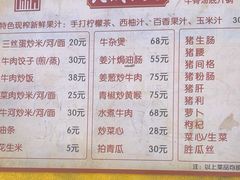 特色现榨新鲜果汁：手打柠檬茶、西柚汁、百香果汁、玉米汁
三丝蛋炒米/河/面 20元
牛肉饺子(煎/蒸) 30元
牛肉炒饭 38元
菜肉炒米/河/面 38元
牛河炒米/面 30元
油条 6元
花生米 5元
牛杂煲 68元
姜汁焗鱼肠 55元
姜葱炒牛肉 75元
青椒炒黄喉 75元
水煮牛肉 68元
炒菜心 28元
拍青瓜 30元
猪生肠
猪腰
猪间格
猪粉肠
猪肝
猪利
萝卜
枸杞
菜心
胜瓜丝
注：以上菜品均